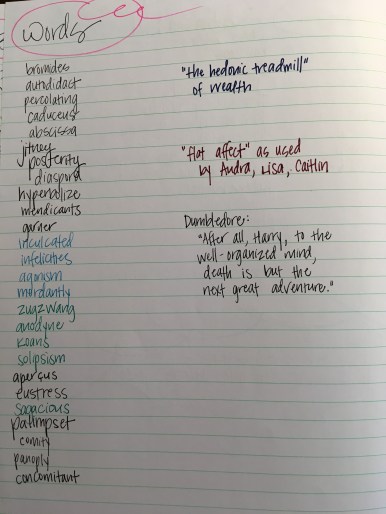 words
bromides
autodidact
percolating
caduceus
abscissa
jitney
posterity
diaspora
hyperbolize
mendicants
garner
inculcated
infelicities
agonism
mordantly
zugzwang
anodyne
koans
solipsism
aperçus
eustress
sagacious
palimpset
comity
panoply
concomitant
"the hedonic treadmill"
of wealth
"flat affect" as used
by Audra, Lisa, Caitlin
Dumbledore:
"After all, Harry, to the
well-organized mind,
death is but the
next great adventure."